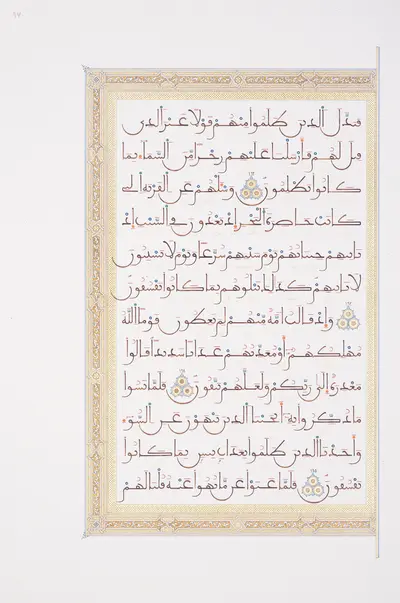 ٩٧
فبدل الذين ظلموا منهم قولا غير الذى
قيل لهم فأرسلنا عليهم رجزا من السماء بما
كانوا يظلمون وسئلهم عن القرية التى
كانت حاضرة البحر إذ يعدون فى السبت إذ
تاتيهم حيتانهم يوم سبتهم شرعا ويوم لا يسبتون
لا تاتيهم كذلك نبلوهم بما كانوا يفسقون
وإذ قالت أمة منهم لم تعظون قوما الله
مهلكهم أو معذبهم عذابا شديدا قالوا
معذرة إلى ربكم ولعلهم يتقون فلما نسوا
ما ذكروا به أنجينا الذين ينهون عن السوء
وأخذنا الذين ظلموا بعذاب بيس بما كانوا
يفسقون فلما عتوا عن ما نهوا عنه قلنا لهم